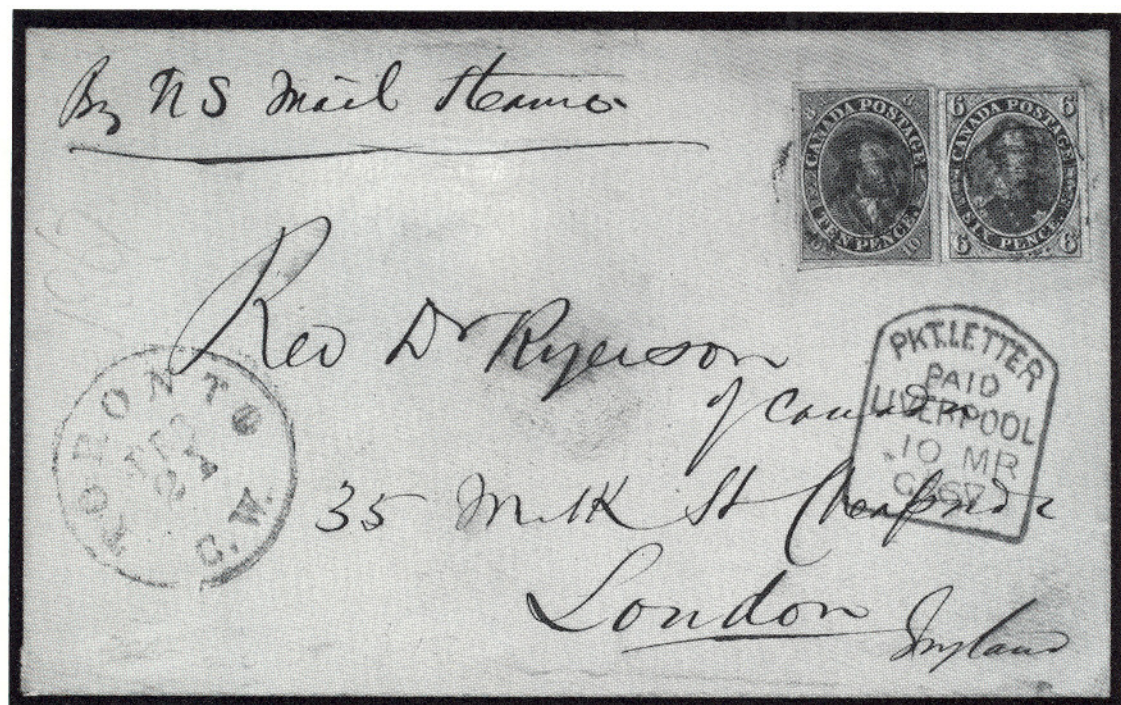 By U S Mail Steamer
8 CANADA POSTAGE 8
TEN PENCE
10
6 CANADA POSTAGE 6
6 SIX PENCE 6
Rev Dr Ryerson
of Canada
35 Milk St Cheapside
London England
TORONTO
C.W.
PKT. LETTER
PAID
LIVERPOOL
10 MR